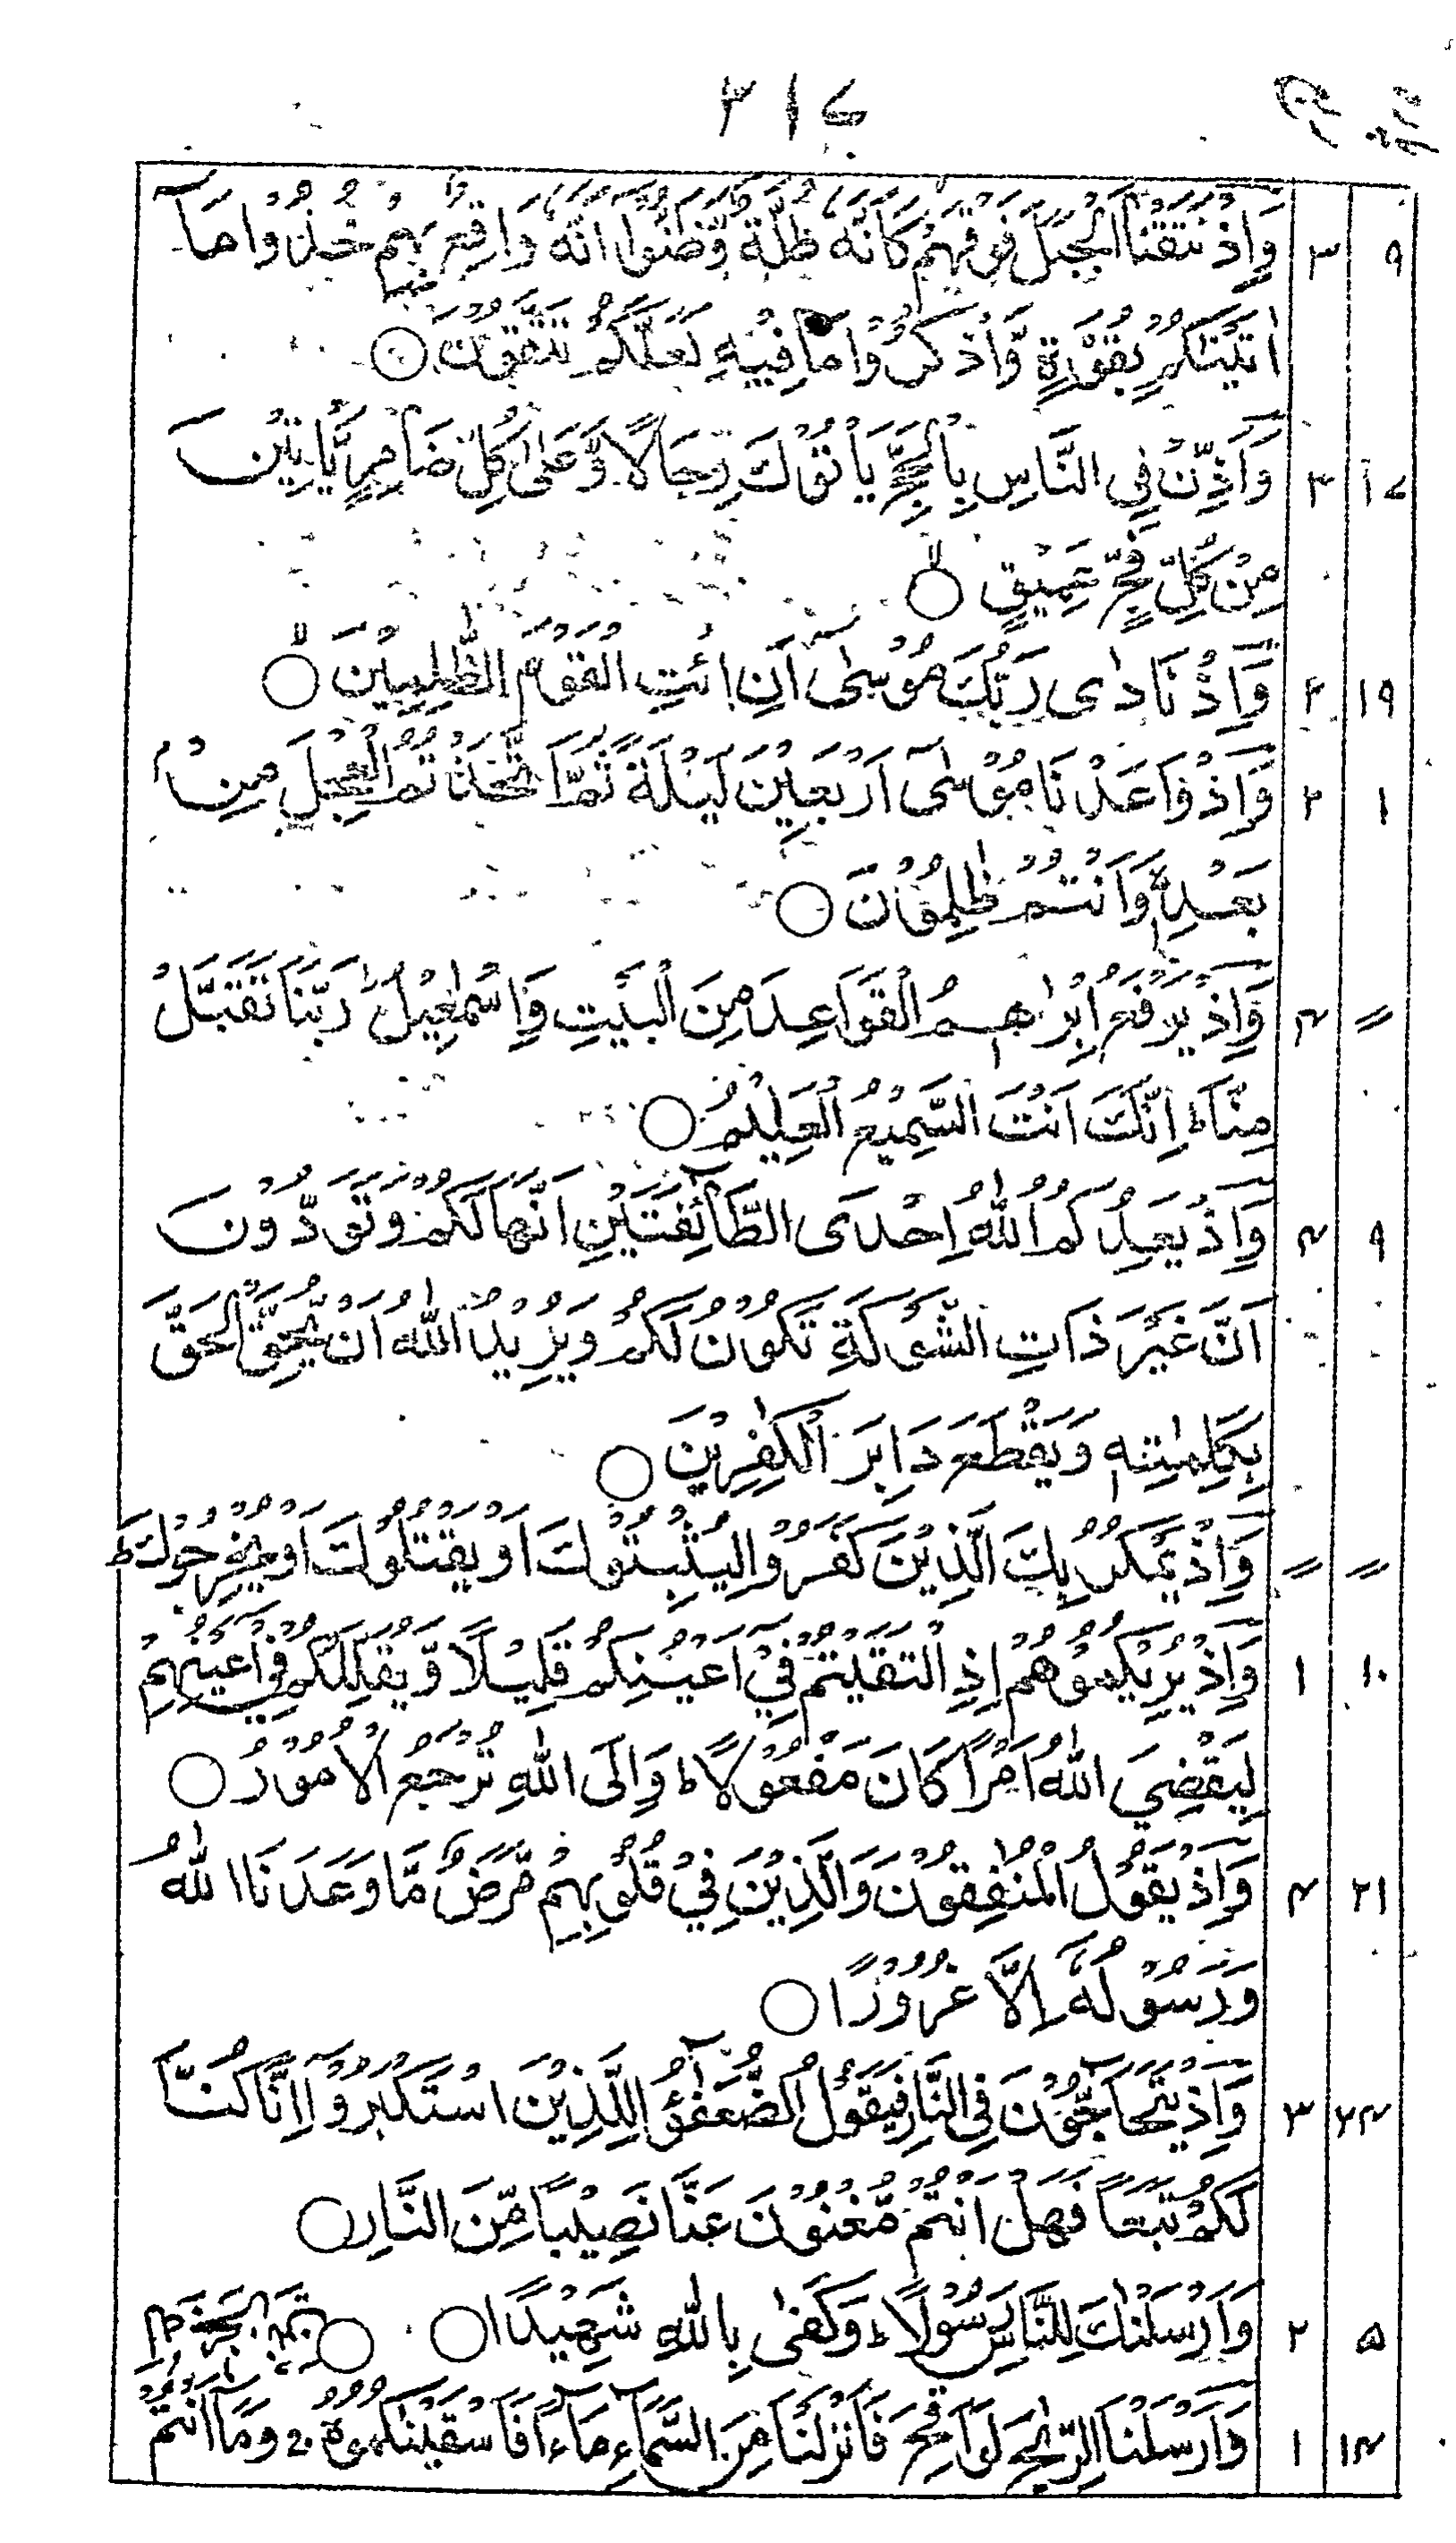 ۳۱۷
۹ ۳ وَاِذْ نَتَقْنَا الْجَبَلَ فَوْقَهُمْ كَاَنَّهٗ ظُلَّةٌ وَّظَنُّوْا اَنَّهٗ وَاقِعٌۢ بِهِمْ خُذُوْا مَآ
اٰتَيْنٰكُمْ بِقُوَّةٍ وَّاذْكُرُوْا مَا فِيْهِ لَعَلَّكُمْ تَتَّقُوْنَ ○
۱۷ ۳ وَاَذِّنْ فِي النَّاسِ بِالْحَجِّ يَاْتُوْكَ رِجَالًا وَّعَلٰى كُلِّ ضَامِرٍ يَّاْتِيْنَ
مِنْ كُلِّ فَجٍّ عَمِيْقٍ ○
۱۹ ۲ وَاِذْ نَادٰى رَبُّكَ مُوْسٰى اَنِ ائْتِ الْقَوْمَ الظّٰلِمِيْنَ ○
۱ ۲ وَاِذْ وٰعَدْنَا مُوْسٰى اَرْبَعِيْنَ لَيْلَةً ثُمَّ اتَّخَذْتُمُ الْعِجْلَ مِنْۢ
بَعْدِهٖ وَاَنْتُمْ ظٰلِمُوْنَ ○
〃 ۴ وَاِذْ يَرْفَعُ اِبْرٰهٖمُ الْقَوَاعِدَ مِنَ الْبَيْتِ وَاِسْمٰعِيْلُ رَبَّنَا تَقَبَّلْ
مِنَّا ط اِنَّكَ اَنْتَ السَّمِيْعُ الْعَلِيْمُ ○
۹ ۴ وَاِذْ يَعِدُكُمُ اللّٰهُ اِحْدَى الطَّآئِفَتَيْنِ اَنَّهَا لَكُمْ وَتَوَدُّوْنَ
اَنَّ غَيْرَ ذَاتِ الشَّوْكَةِ تَكُوْنُ لَكُمْ وَيُرِيْدُ اللّٰهُ اَنْ يُّحِقَّ الْحَقَّ
بِكَلِمٰتِهٖ وَيَقْطَعَ دَابِرَ الْكٰفِرِيْنَ ○
〃 〃 وَاِذْ يَمْكُرُ بِكَ الَّذِيْنَ كَفَرُوْا لِيُثْبِتُوْكَ اَوْ يَقْتُلُوْكَ اَوْ يُخْرِجُوْكَ ط
۱۰ ۱ وَاِذْ يُرِيْكُمُوْهُمْ اِذِ الْتَقَيْتُمْ فِيْٓ اَعْيُنِكُمْ قَلِيْلًا وَّيُقَلِّلُكُمْ فِيْٓ اَعْيُنِهِمْ
لِيَقْضِيَ اللّٰهُ اَمْرًا كَانَ مَفْعُوْلًا ط وَاِلَى اللّٰهِ تُرْجَعُ الْاُمُوْرُ ○
۲۱ ۴ وَاِذْ يَقُوْلُ الْمُنٰفِقُوْنَ وَالَّذِيْنَ فِيْ قُلُوْبِهِمْ مَّرَضٌ مَّا وَعَدَنَا اللّٰهُ
وَرَسُوْلُهٗٓ اِلَّا غُرُوْرًا ○
۲۴ ۳ وَاِذْ يَتَحَآجُّوْنَ فِى النَّارِ فَيَقُوْلُ الضُّعَفٰٓؤُا لِلَّذِيْنَ اسْتَكْبَرُوْٓا اِنَّا كُنَّا
لَكُمْ تَبَعًا فَهَلْ اَنْتُمْ مُّغْنُوْنَ عَنَّا نَصِيْبًا مِّنَ النَّارِ ○
۵ ۲ وَاَرْسَلْنٰكَ لِلنَّاسِ رَسُوْلًا ط وَكَفٰى بِاللّٰهِ شَهِيْدًا ○ ○
۱۴ ۱ وَاَرْسَلْنَا الرِّيٰحَ لَوَاقِحَ فَاَنْزَلْنَا مِنَ السَّمَآءِ مَآءً فَاَسْقَيْنٰكُمُوْهُ وَمَآ اَنْتُمْ